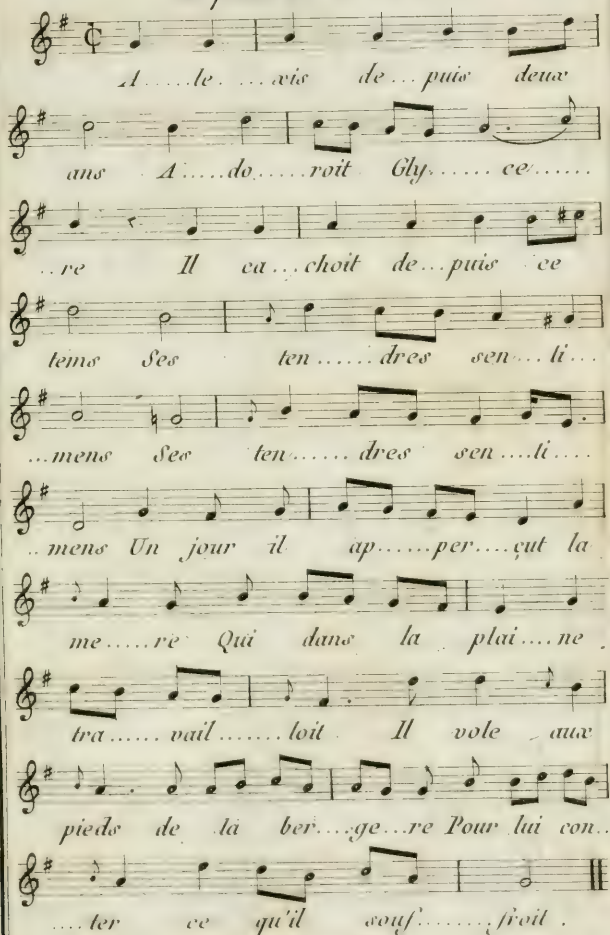 A.....le....xis de...puis deux
ans A.....do.....roit Gly......ce......
..re Il ca...choit de...puis ce
tems Ses ten......dres sen...ti...
...mens Ses ten......dres sen....ti....
..mens Un jour il ap......per....çut la
me.....re Qui dans la plai....ne
tra......vail........loit Il vole aux
pieds de la ber....ge...re Pour lui con..
....ter ce qu'il souf........froit.